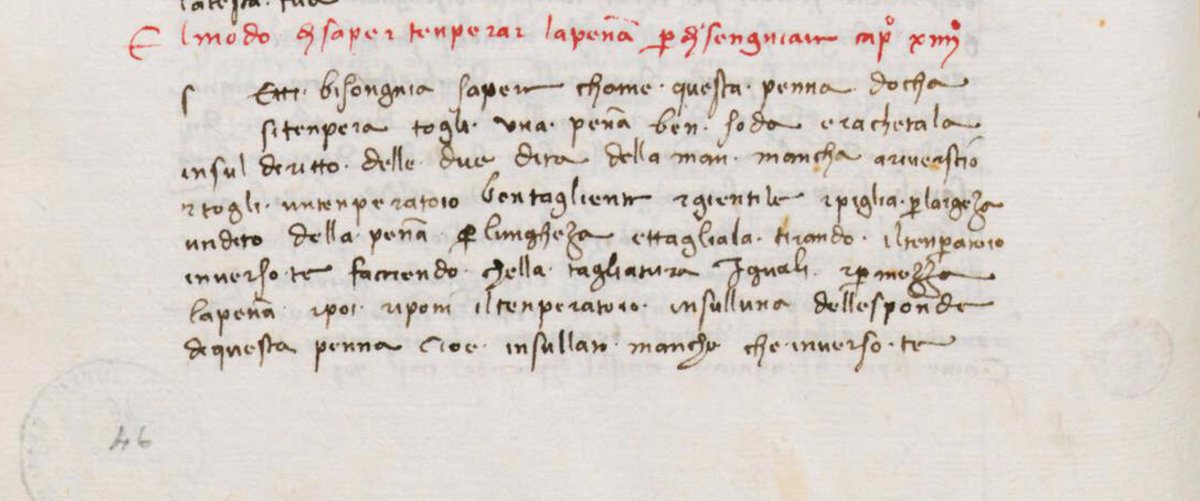 la testa tua
El modo di saper tenperar la peña p disengniare capo xiiij
S Etti bisongnia sapere chome questa penna docha
si tenpera togli una peña ben soda e rachetala
in sul deritto delle due dita della man mancha a riverscio
e togli un tenperatoio ben tagliente e gientile e piglia p largeza
un dito della peña p lungheza e ttagliala tirando il tenpatoio
inverso te facciendo chella tagliatura Iguali e p mezza
la peña e poi riponi il tenperatoio in sulluna delle sponde
di questa penna cioe in sullato mancho che inverso te
46